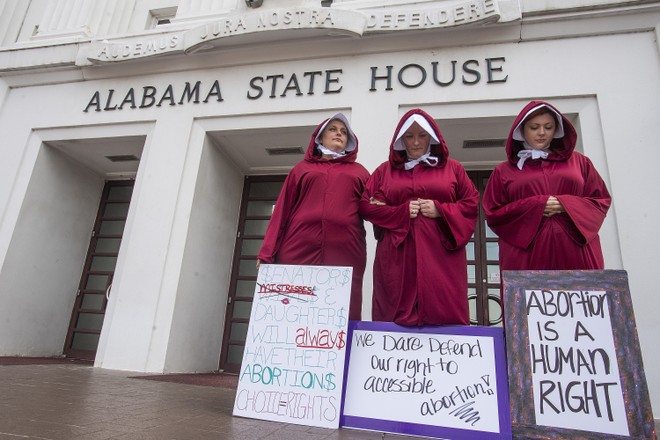 AUDEMUS JURA NOSTRA DEFENDERE
ALABAMA STATE HOUSE
SENATOR$
MISTRESSES &
DAUGHTER$
WILL always
HAVE THEIR
ABORTION$
CHOICE=RIGHTS
We Dare Defend
our right to
accessible
abortion!
ABORTION
IS A
HUMAN
RIGHT